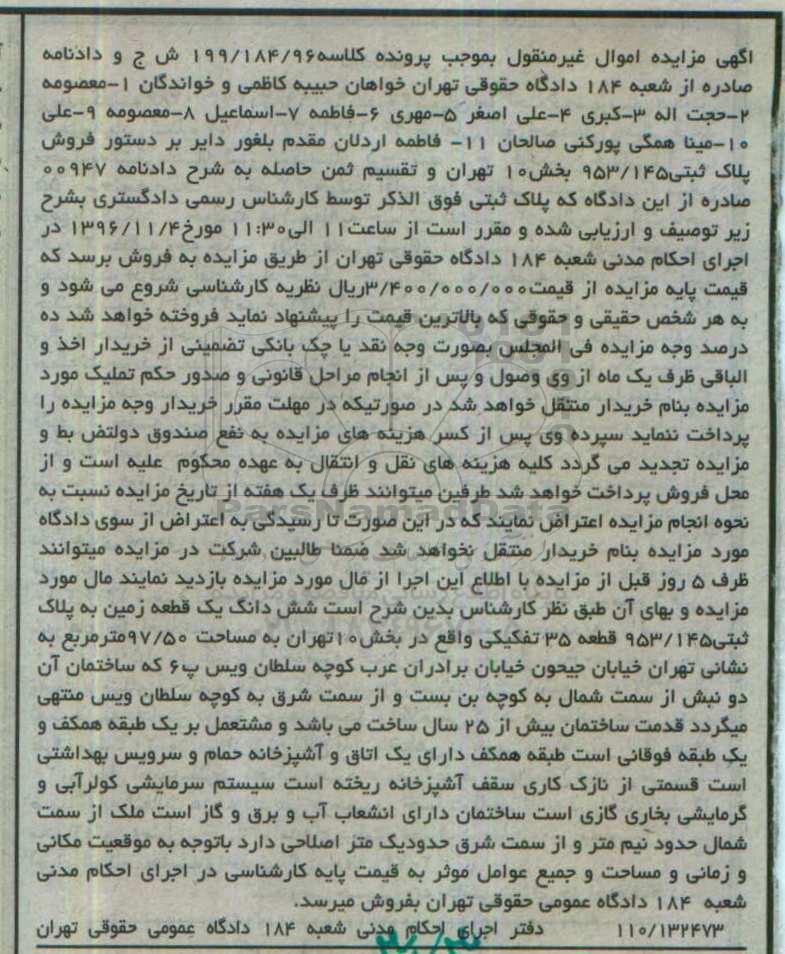 اگهی مزایده اموال غیرمنقول بموجب پرونده کلاسه۱۹۹/۱۸۴/۹۶ ش ج و دادنامه
صادره از شعبه ۱۸۴ دادگاه حقوقی تهران خواهان حبیبه کاظمی و خواندگان ۱-معصومه
۲-حجت اله ۳-کبری ۴-علی اصغر ۵-مهری ۶-فاطمه ۷-اسماعیل ۸-معصومه ۹-علی
۱۰-مینا همگی پورکنی صالحان ۱۱- فاطمه اردلان مقدم بلغور دایر بر دستور فروش
پلاک ثبتی۹۵۳/۱۴۵ بخش۱۰ تهران و تقسیم ثمن حاصله به شرح دادنامه ۰۰۹۴۷
صادره از این دادگاه که پلاک ثبتی فوق الذکر توسط کارشناس رسمی دادگستری بشرح
زیر توصیف و ارزیابی شده و مقرر است از ساعت۱۱ الی۱۱:۳۰ مورخ۱۳۹۶/۱۱/۴ در
اجرای احکام مدنی شعبه ۱۸۴ دادگاه حقوقی تهران از طریق مزایده به فروش برسد که
قیمت پایه مزایده از قیمت۳/۴۰۰/۰۰۰/۰۰۰ریال نظریه کارشناسی شروع می شود و
به هر شخص حقیقی و حقوقی که بالاترین قیمت را پیشنهاد نماید فروخته خواهد شد ده
درصد وجه مزایده فی المجلس بصورت وجه نقد یا چک بانکی تضمینی از خریدار اخذ و
الباقی ظرف یک ماه از وی وصول و پس از انجام مراحل قانونی و صدور حکم تملیک مورد
مزایده بنام خریدار منتقل خواهد شد در صورتیکه در مهلت مقرر خریدار وجه مزایده را
پرداخت ننماید سپرده وی پس از کسر هزینه های مزایده به نفع صندوق دولتض بط و
مزایده تجدید می گردد کلیه هزینه های نقل و انتقال به عهده محکوم علیه است و از
محل فروش پرداخت خواهد شد طرفین میتوانند ظرف یک هفته از تاریخ مزایده نسبت به
نحوه انجام مزایده اعتراض نمایند که در این صورت تا رسیدگی به اعتراض از سوی دادگاه
مورد مزایده بنام خریدار منتقل نخواهد شد ضمنا طالبین شرکت در مزایده میتوانند
ظرف ۵ روز قبل از مزایده با اطلاع این اجرا از مال مورد مزایده بازدید نمایند مال مورد
مزایده و بهای آن طبق نظر کارشناس بدین شرح است شش دانگ یک قطعه زمین به پلاک
ثبتی۹۵۳/۱۴۵ قطعه ۳۵ تفکیکی واقع در بخش۱۰تهران به مساحت ۹۷/۵۰مترمربع به
نشانی تهران خیابان جیحون خیابان برادران عرب کوچه سلطان ویس پ۶ که ساختمان آن
دو نبش از سمت شمال به کوچه بن بست و از سمت شرق به کوچه سلطان ویس منتهی
میگردد قدمت ساختمان بیش از ۲۵ سال ساخت می باشد و مشتمل بر یک طبقه همکف و
یک طبقه فوقانی است طبقه همکف دارای یک اتاق و آشپزخانه حمام و سرویس بهداشتی
است قسمتی از نازک کاری سقف آشپزخانه ریخته است سیستم سرمایشی کولرآبی و
گرمایشی بخاری گازی است ساختمان دارای انشعاب آب و برق و گاز است ملک از سمت
شمال حدود نیم متر و از سمت شرق حدودیک متر اصلاحی دارد باتوجه به موقعیت مکانی
و زمانی و مساحت و جمیع عوامل موثر به قیمت پایه کارشناسی در اجرای احکام مدنی
شعبه ۱۸۴ دادگاه عمومی حقوقی تهران بفروش میرسد.
۱۱۰/۱۳۲۴۷۳ دفتر اجرای احکام مدنی شعبه ۱۸۴ دادگاه عمومی حقوقی تهران
ParsNamadData